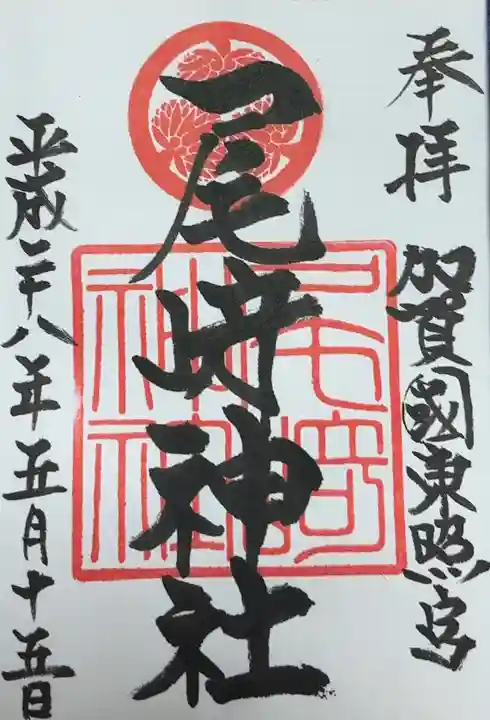 奉拝 加賀國東照宮
尾崎神社
平成二十八年五月十五日